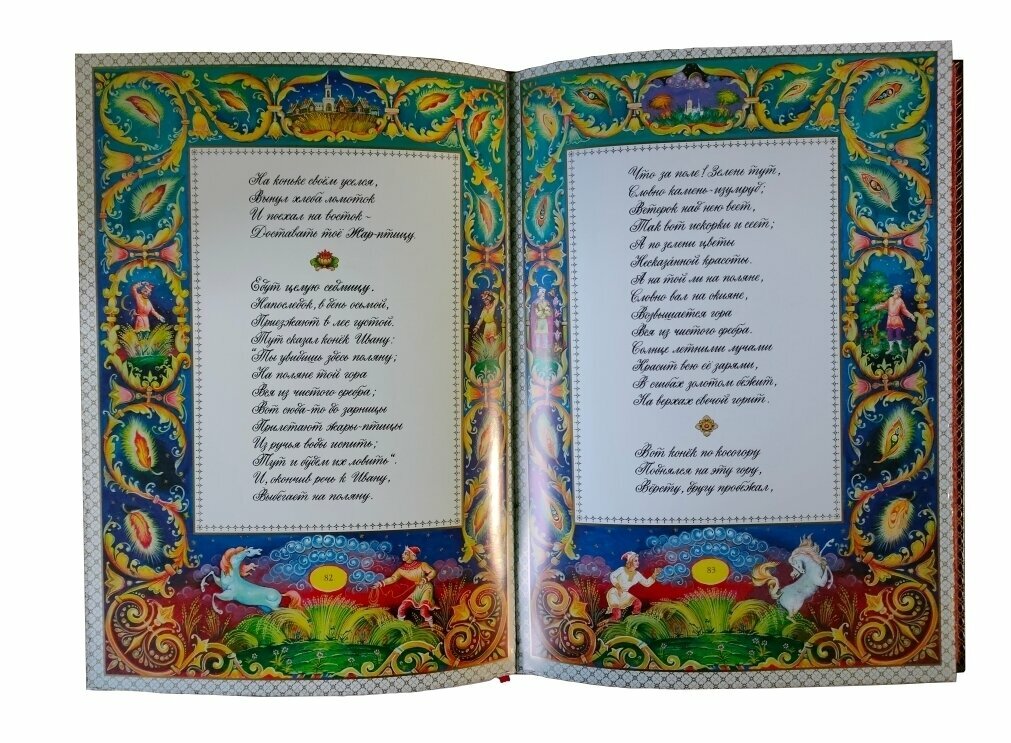 На коньке своём уселся,
Вынул хлеба ломоток
И поехал на восток –
Доставать тоё Жар-птицу.
Едут целую седмицу.
Напоследок, в день осьмой,
Приезжают в лес густой.
Тут сказал конёк Ивану:
"Ты увидишь здесь поляну;
На поляне той гора
Вся из чистого сребра;
Вот сюда-то до зарницы
Прилетают жары-птицы
Из ручья воды испить;
Тут и будем их ловить".
И, окончив речь к Ивану,
Выбегает на поляну.
82
Что за поле! Зелень тут,
Словно камень-изумруд;
Ветерок над нею веет,
Так вот искорки и сеет;
А по зелени цветы
Несказанной красоты.
А на той ли на поляне,
Словно вал на окияне,
Возвышается гора
Вся из чистого сребра.
Солнце летними лучами
Красит всю её зарями,
В сгибах золотом бежит,
На верхах свечой горит.
Вот конёк по косогору
Поднялся на эту гору,
Вёрсту, другу пробежал,
83